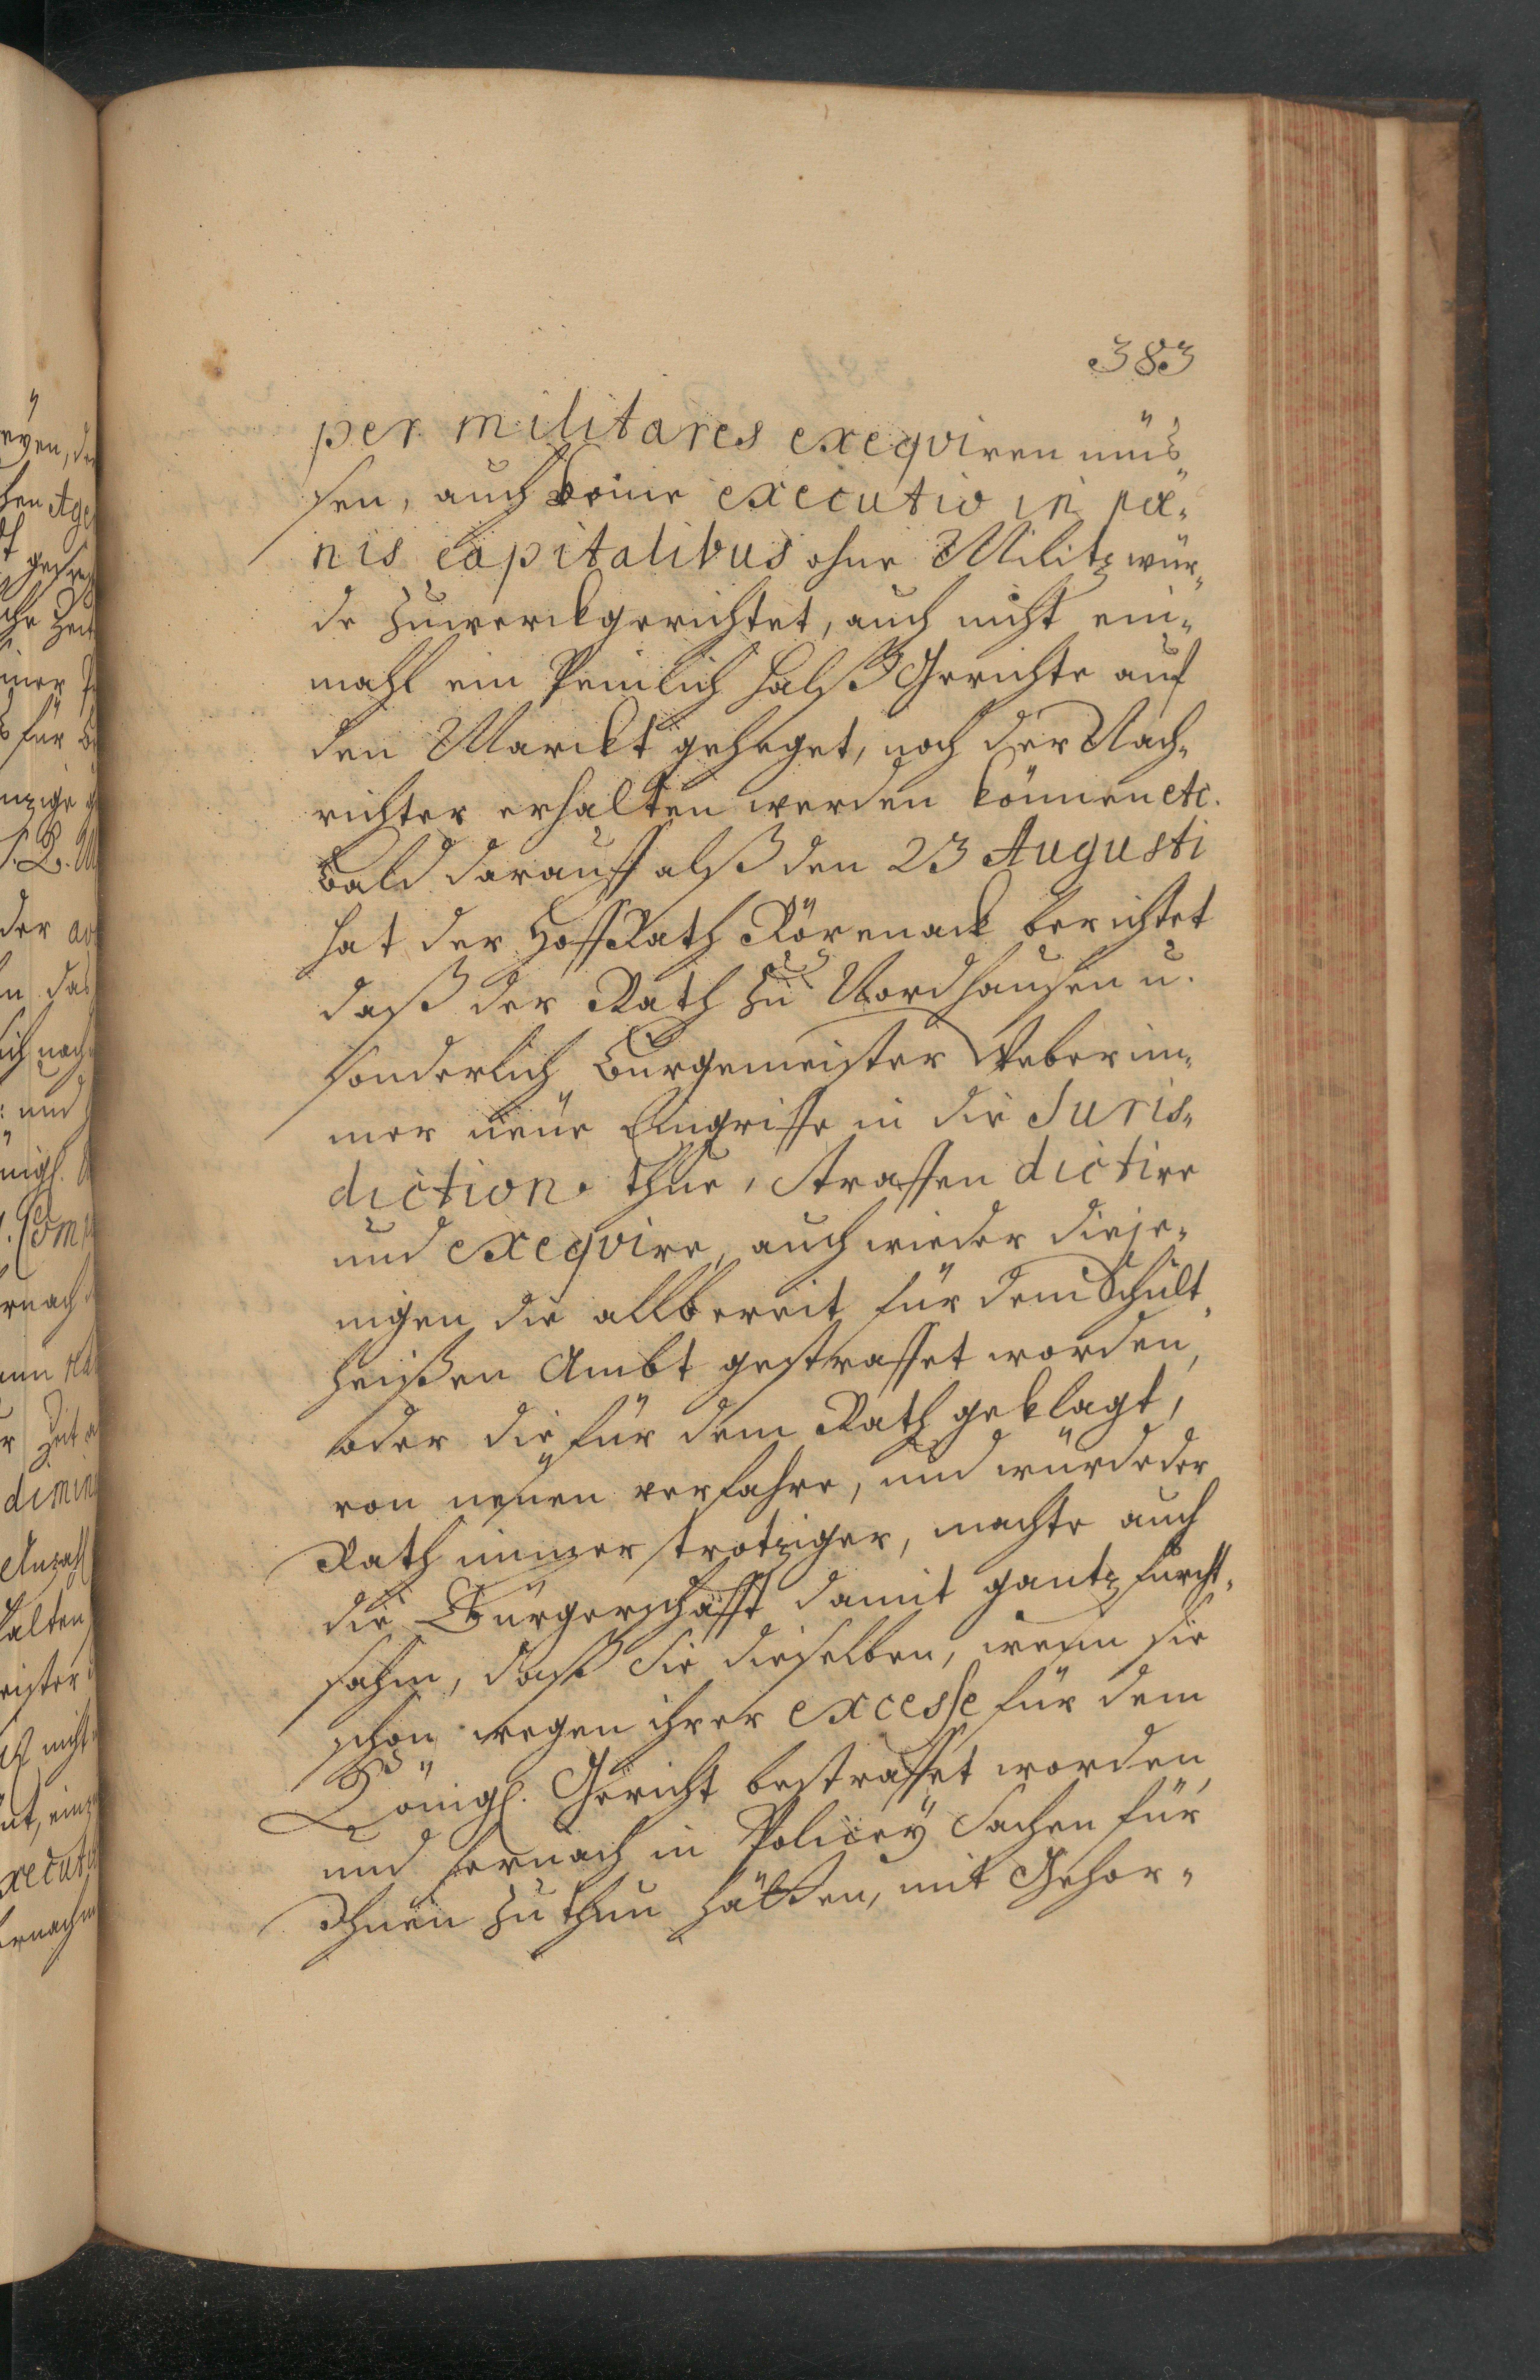 383
per militares exeqviren müs„
sen, auch keine executio in pæ„
nis capitalibus ohne Militz wür„
de zuwerckgerichtet, auch nicht ein„
mahl ein Peinlich Halß Gerichte auf
den Marckt geheget, noch der Nach„
richter erhalten werden können etc.
Bald darauff alß den 23 Augusti
hat der Hoff Rath Rörenack berichtet
daß der Rath zu Nordhausen u.
sonderlich Burgemeister Weber im„
mer neue Eingriffe in die Juris„
diction thue, straffen dictire
und exeqvire, auch wieder dieje„
nigen die allbereit für dem Schult„
heißen Ambt gestraffet worden,
oder die für dem Rath geklagt,
von neuen verfahre, und würde der
Rath immer trotziger, machte auch
die Bürgerschafft damit gantz furcht„
sahm, daß Sie dieselben, wenn sie
schon wegen ihrer excesse für dem
Königl. Gericht bestraffet worden,
und hernach in Policey Sachen für
Ihnen zu thun hätten, mit Gehor„